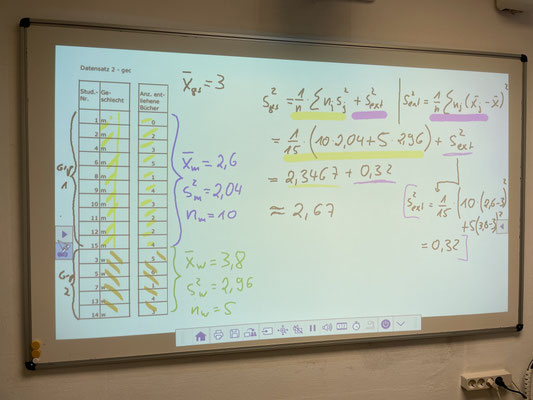 Datensatz 2 - gec
Stud.-Nr. Ge-schlecht Anz. ent-liehene Bücher
1 m 0
2 m
4 m
6 m
8 m
9 m
10 m
11 m
12 m
15 m 4
3 w 5
5 w
7 w
13 w
14 w
Grp. 1
Grp. 2
x̄_ges = 3
x̄_m = 2,6
s²_m = 2,04
n_m = 10
x̄_w = 3,8
s²_w = 2,96
n_w = 5
s²_ges = 1/n · Σ n_j s²_j + s²_ext | s²_ext = 1/n Σ n_j (x̄_j - x̄)²
= 1/15 · (10·2,04 + 5·2,96) + s²_ext
= 2,3467 + 0,32
≈ 2,67
[s²_ext = 1/15 · (10·(2,6-3)²
+5(3,8-3)²
= 0,32 ]